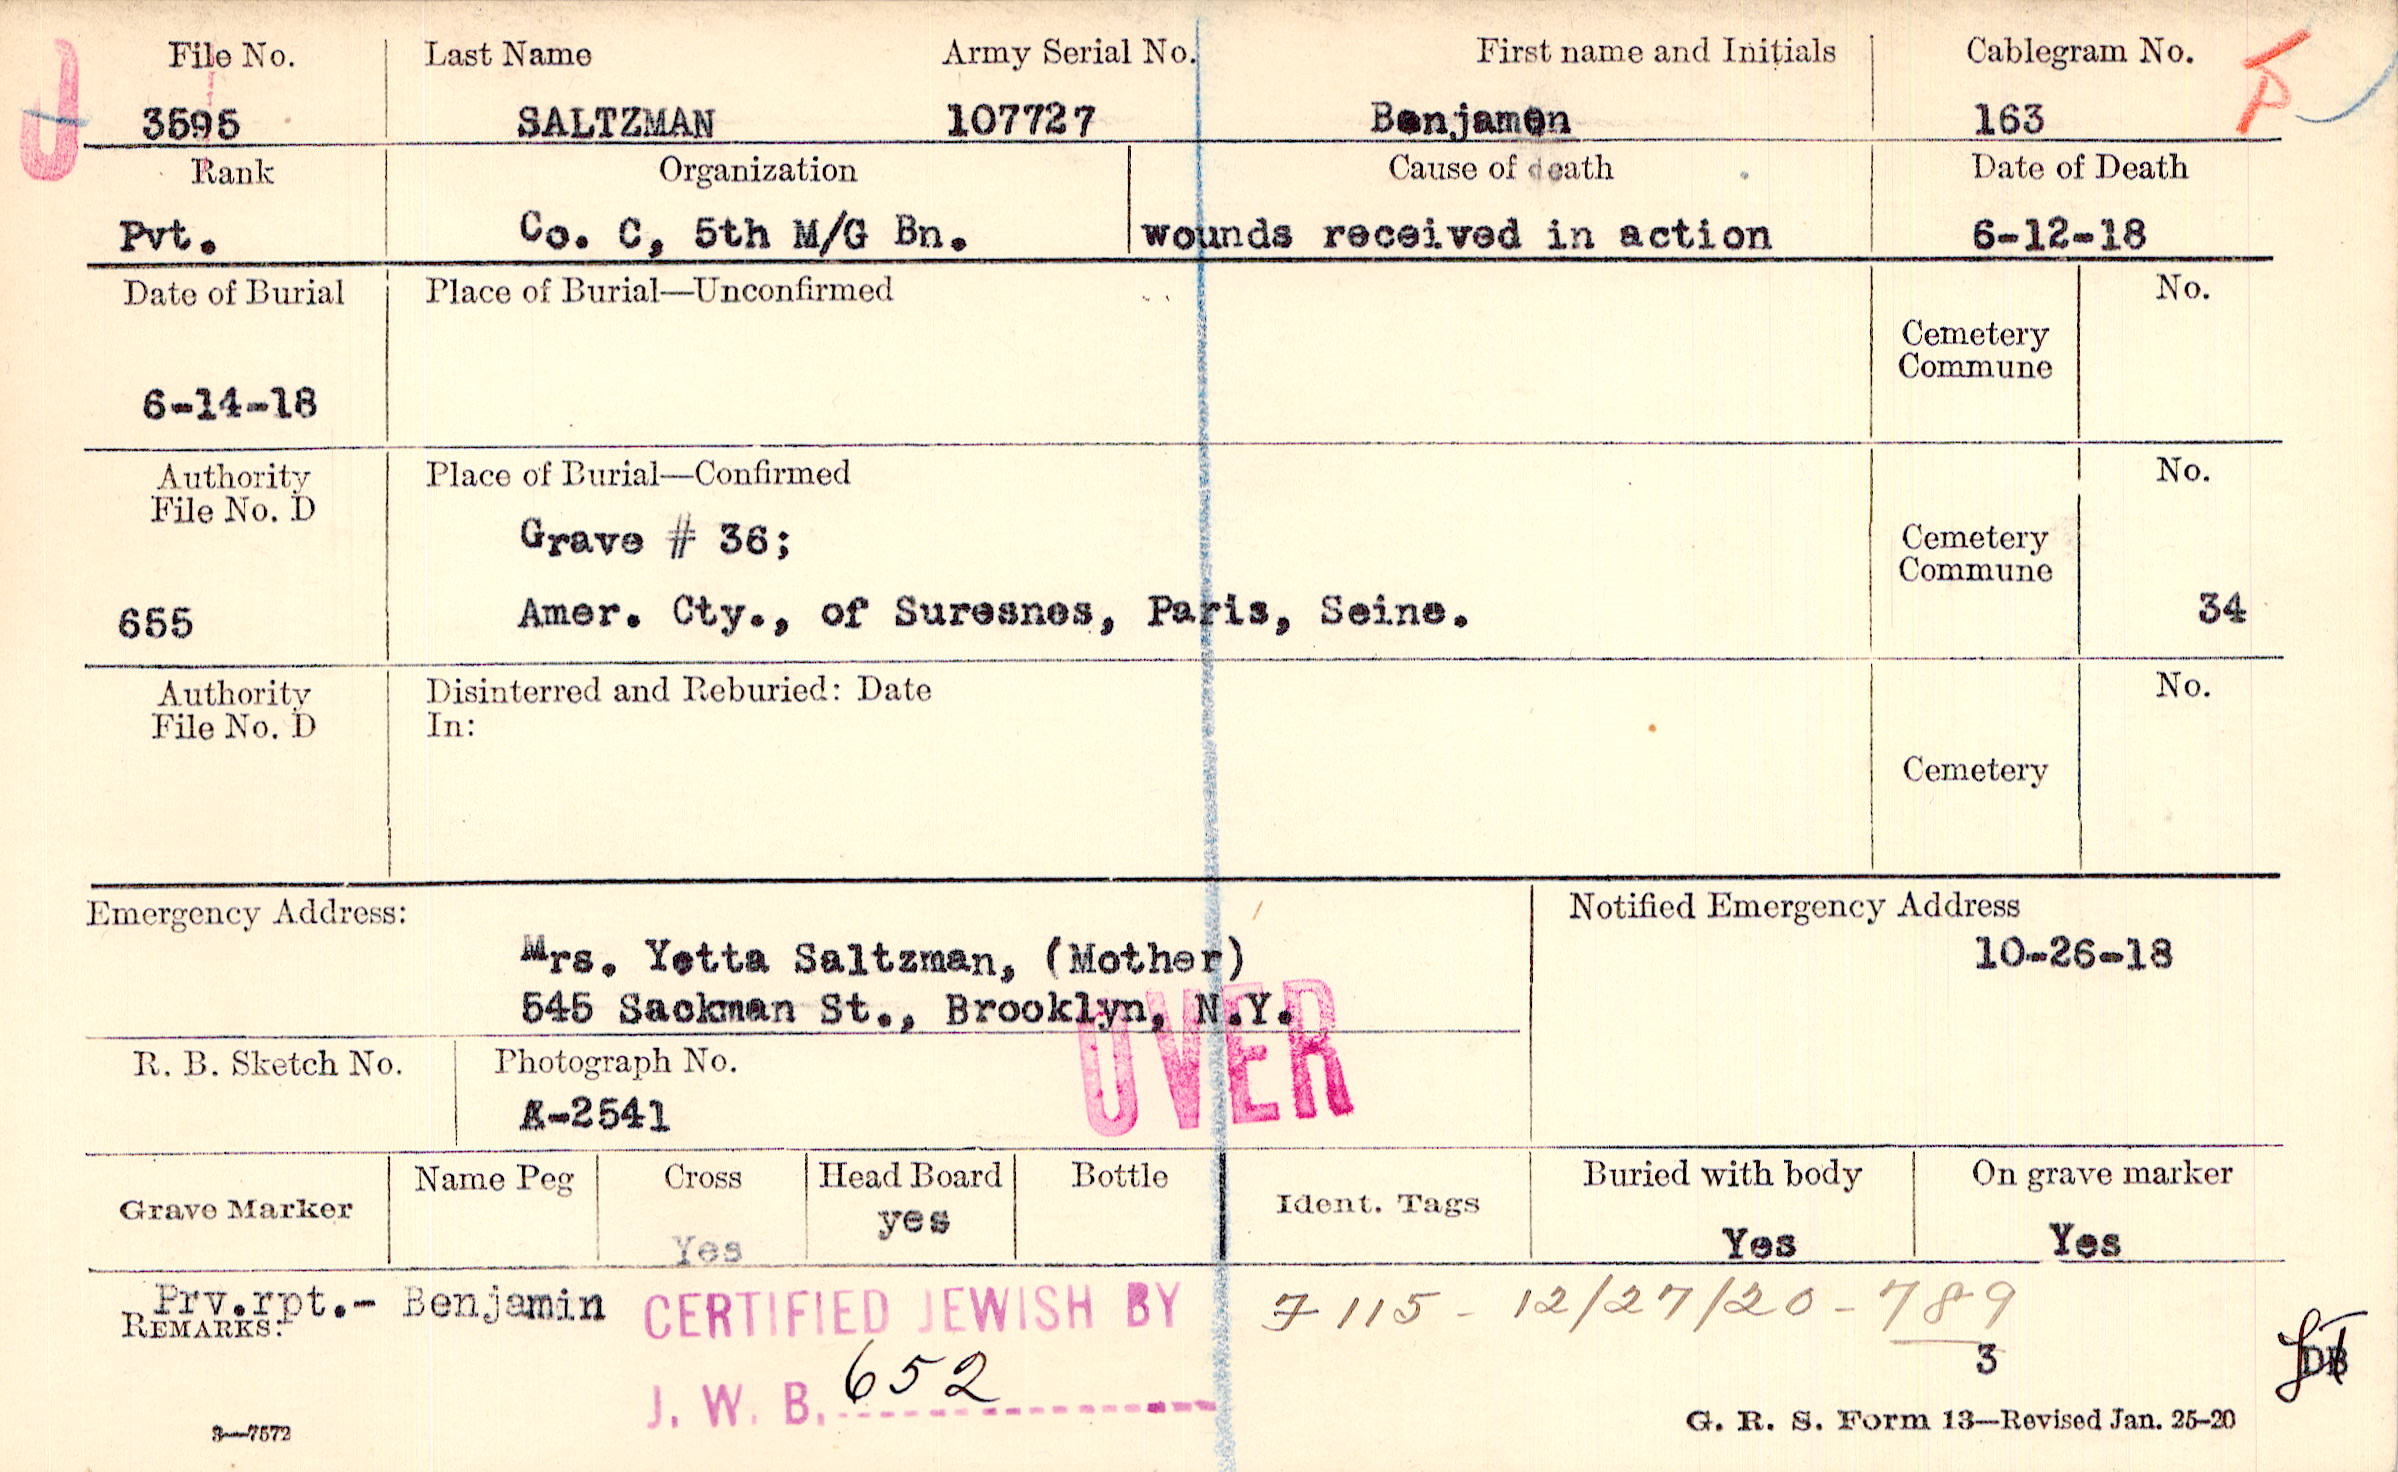 J
File No. Last Name Army Serial No. First name and Initials Cablegram No.
3595 SALTZMAN 107727 Benjamen 163
Rank Organization Cause of death Date of Death
Pvt. Co. C, 5th M/G Bn. wounds received in action 6-12-18
Date of Burial Place of Burial—Unconfirmed No.
Cemetery
Commune
6-14-18
Authority Place of Burial—Confirmed No.
File No. D
Grave # 36; Cemetery
Commune
655 Amer. Cty., of Suresnes, Paris, Seine. 34
Authority Disinterred and Reburied: Date No.
File No. D In:
Cemetery
Emergency Address: Notified Emergency Address
Mrs. Yetta Saltzman, (Mother) 10-26-18
545 Sackman St., Brooklyn, N.Y.
OVER
R. B. Sketch No. Photograph No.
A-2541
Grave Marker Name Peg Cross Head Board Bottle Ident. Tags Buried with body On grave marker
Yes yes Yes Yes
Prv.rpt.- Benjamin CERTIFIED JEWISH BY 7115 - 12/27/20 - 789
REMARKS: 3
J. W. B. 652
DB
3—7572 G. R. S. Form 13—Revised Jan. 25-20